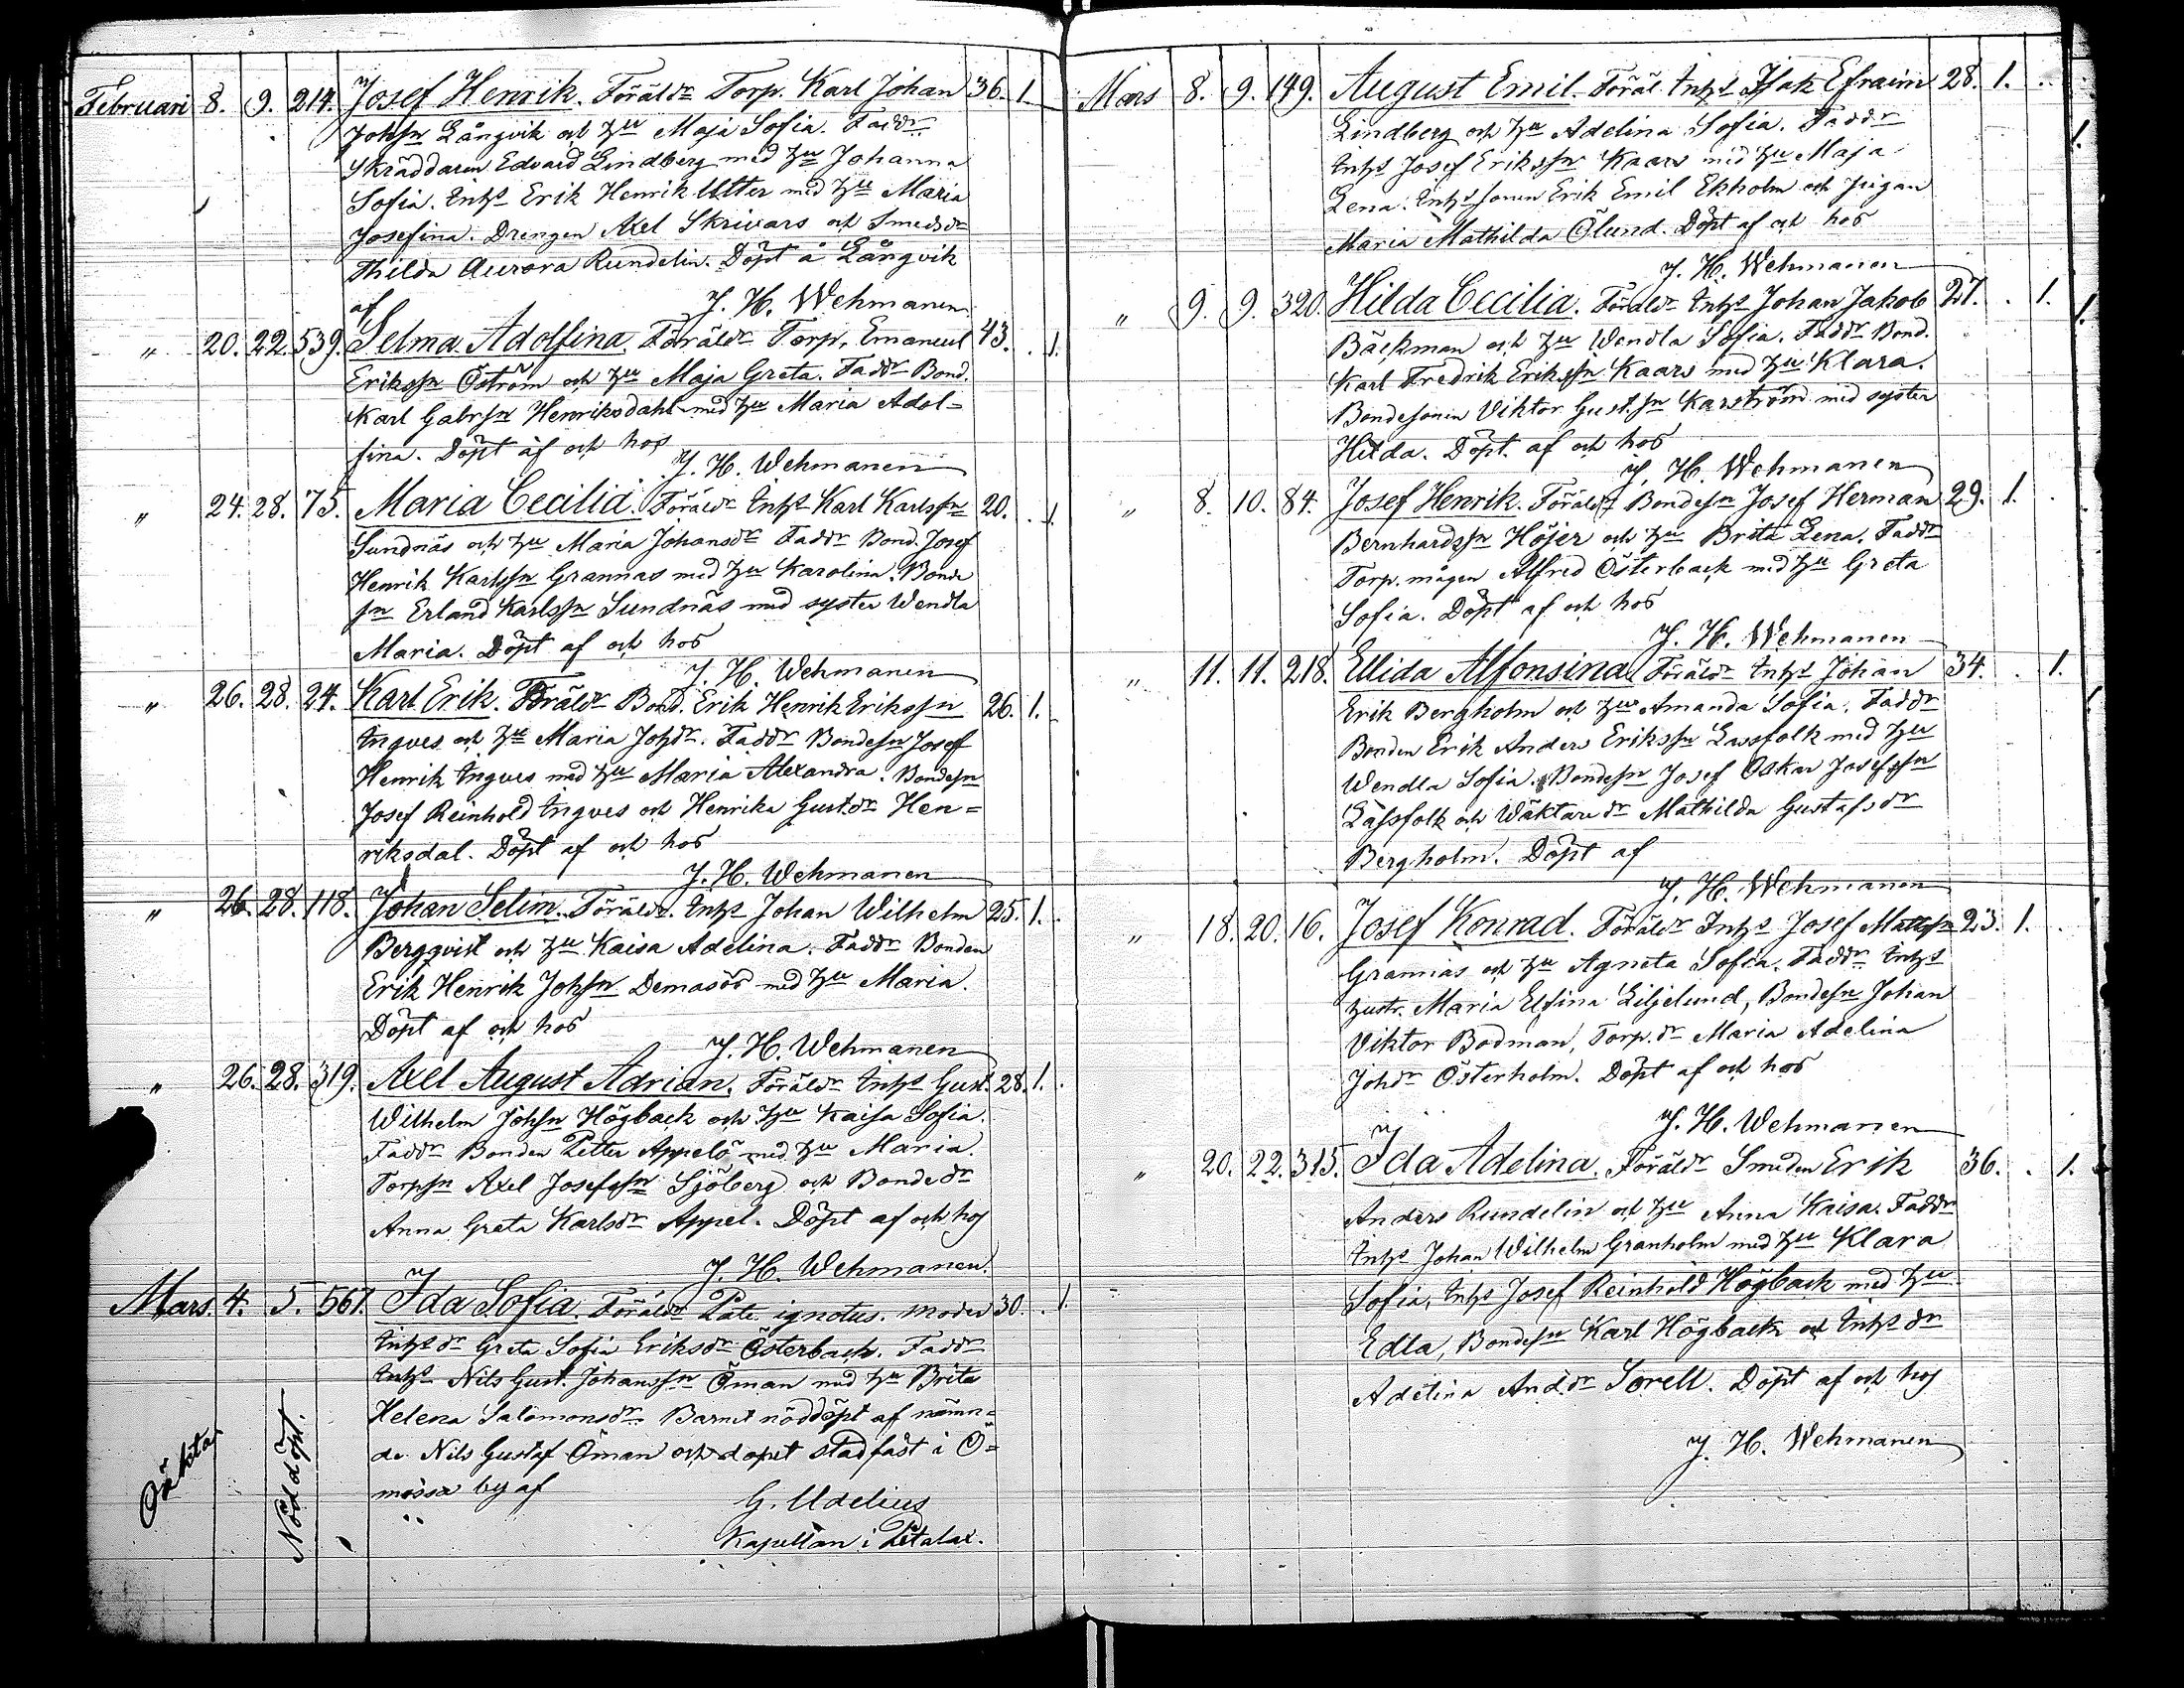 Februari 8. 9. 214. Josef Henrik. Föräldr Torp. Karl Johan 36. 1.
Johsn Långvik och hu Maja Sofia. Faddr
Skräddaren Edvard Lindberg med hu Johanna
Sofia. Inhs Erik Henrik Utter med hu Maria
Josefina. Drengen Axel Skrivars och Smedsdr
Thilda Aurora Rundelin. Döpt å Långvik
af J. H. Wehmanen
" 20. 22. 539. Selma Adolfina. Föräldr Torp. Emanuel 43. . 1.
Erikssn Öström och hu Maja Greta. Faddr Bond.
Karl Gabrsn Henriksdahl med hu Maria Adol=
fina. Döpt af och hos
J. H. Wehmanen
" 24. 28. 75. Maria Cecilia. Föräldr Inhs Karl Karlssn 20. . 1.
Sundnäs och hu Maria Johansdr Faddr Bond. Josef
Henrik Karlssn Grannas med hu Karolina. Bonde
sn Erland Karlssn Sundnäs med syster Wendla
Maria. Döpt af och hos
J. H. Wehmanen
" 26. 28. 24. Karl Erik. Föräldr Bond. Erik Henrik Erikssn 26. 1.
Ingves och hu Maria Johdr. Faddr Bondesn Josef
Henrik Ingves med hu Maria Alexandra. Bondesn
Josef Reinhold Ingves och Henrika Gust.dr Hen=
riksdal. Döpt af och hos
J. H. Wehmanen
" 26. 28. 118. Johan Selim. Föräldr. Inhs Johan Wilhelm 25. 1. .
Bergqvist och hu Kaisa Adelina. Faddr Bonden
Erik Henrik Johsn Demasös med hu Maria.
Döpt af och hos
J. H. Wehmanen
" 26. 28. 319. Axel August Adrian. Föräldr Inhs Gust. 28. 1. .
Wilhelm Johsn Högback och hu Kaisa Sofia.
Faddr Bonden Petter Appelö med hu Maria.
Torpsn Axel Josefssn Sjöberg och Bondedr
Anna Greta Karlsdr Appel. Döpt af och hos
J. H. Wehmanen.
Mars. 4. 5. 567. Ida Sofia. Föräldr Pate ignotus. moder 30. . 1.
Inhsdr Greta Sofia Eriksdr Österback. Faddr
Inhs Nils Gust. Johanssn Öman med hu Brita
Helena Salomonsdr Barnet nöddöpt af nämn=
de Nils Gustaf Öman och dopet stadfäst i Ö=
mossa by af
G. Udelius
Kapellan i Petalax.
Oäkta
Nöddöpt.
Mars 8. 9. 149. August Emil. Föräl. Inhs Isak Efraim 28. 1. .
Lindberg och hu Adelina Sofia. Faddr
Inhs Josef Erikssn Kaars med hu Maja
Lena. Inhs sonen Erik Emil Ekholm och pigan
Maria Mathilda Ölund. Döpt af och hos
J. H. Wehmanen
" 9. 9. 320. Hilda Cecilia. Föräldr Inhs Johan Jakob 27. . 1.
Bäckman och hu Wendla Sofia. Faddr Bond.
Karl Fredrik Erikssn Kaars med hu Klara.
Bondesonen Viktor Gust.sn Karström med syster
Hilda. Döpt af och hos
J. H. Wehmanen
" 8. 10. 84. Josef Henrik. Föräldr Bondesn Josef Herman 29. 1. .
Bernhardssn Höjer och hu Brita Lena. Faddr
Torp.mågen Alfred Österback med hu Greta
Sofia. Döpt af och hos
J. H. Wehmanen
" 11. 11. 218. Ellida Alfonsina. Föräldr Inhs Johan 34. . 1.
Erik Bergholm och hu Amanda Sofia. Faddr
Bonden Erik Anders Erikssn Lassfolk med hu
Wendla Sofia. Bondesn Josef Oskar Josefssn
Lassfolk och Wäktaredr Mathilda Gustafsdr
Bergholm. Döpt af
J. H. Wehmanen
" 18. 20. 16. Josef Konrad. Föräldr Inhs Josef Mattssn 23. 1. .
Grannas och hu Agneta Sofia. Faddr Inhs
hustr. Maria Elfina Liljelund, Bondesn Johan
Viktor Bodman, Torp.dr Maria Adelina
Johdr Österholm. Döpt af och hos
J. H. Wehmanen
" 20. 22. 315. Ida Adelina. Föräldr Smeden Erik 36. . 1.
Anders Rundelin och hu Anna Kaisa. Faddr
Inhs Johan Wilhelm Granholm med hu Klara
Sofia, Inhs Josef Reinhold Högback med hu
Edla, Bondesn Karl Högback och Inhsdr
Adelina And.dr Sorell. Döpt af och hos
J. H. Wehmanen